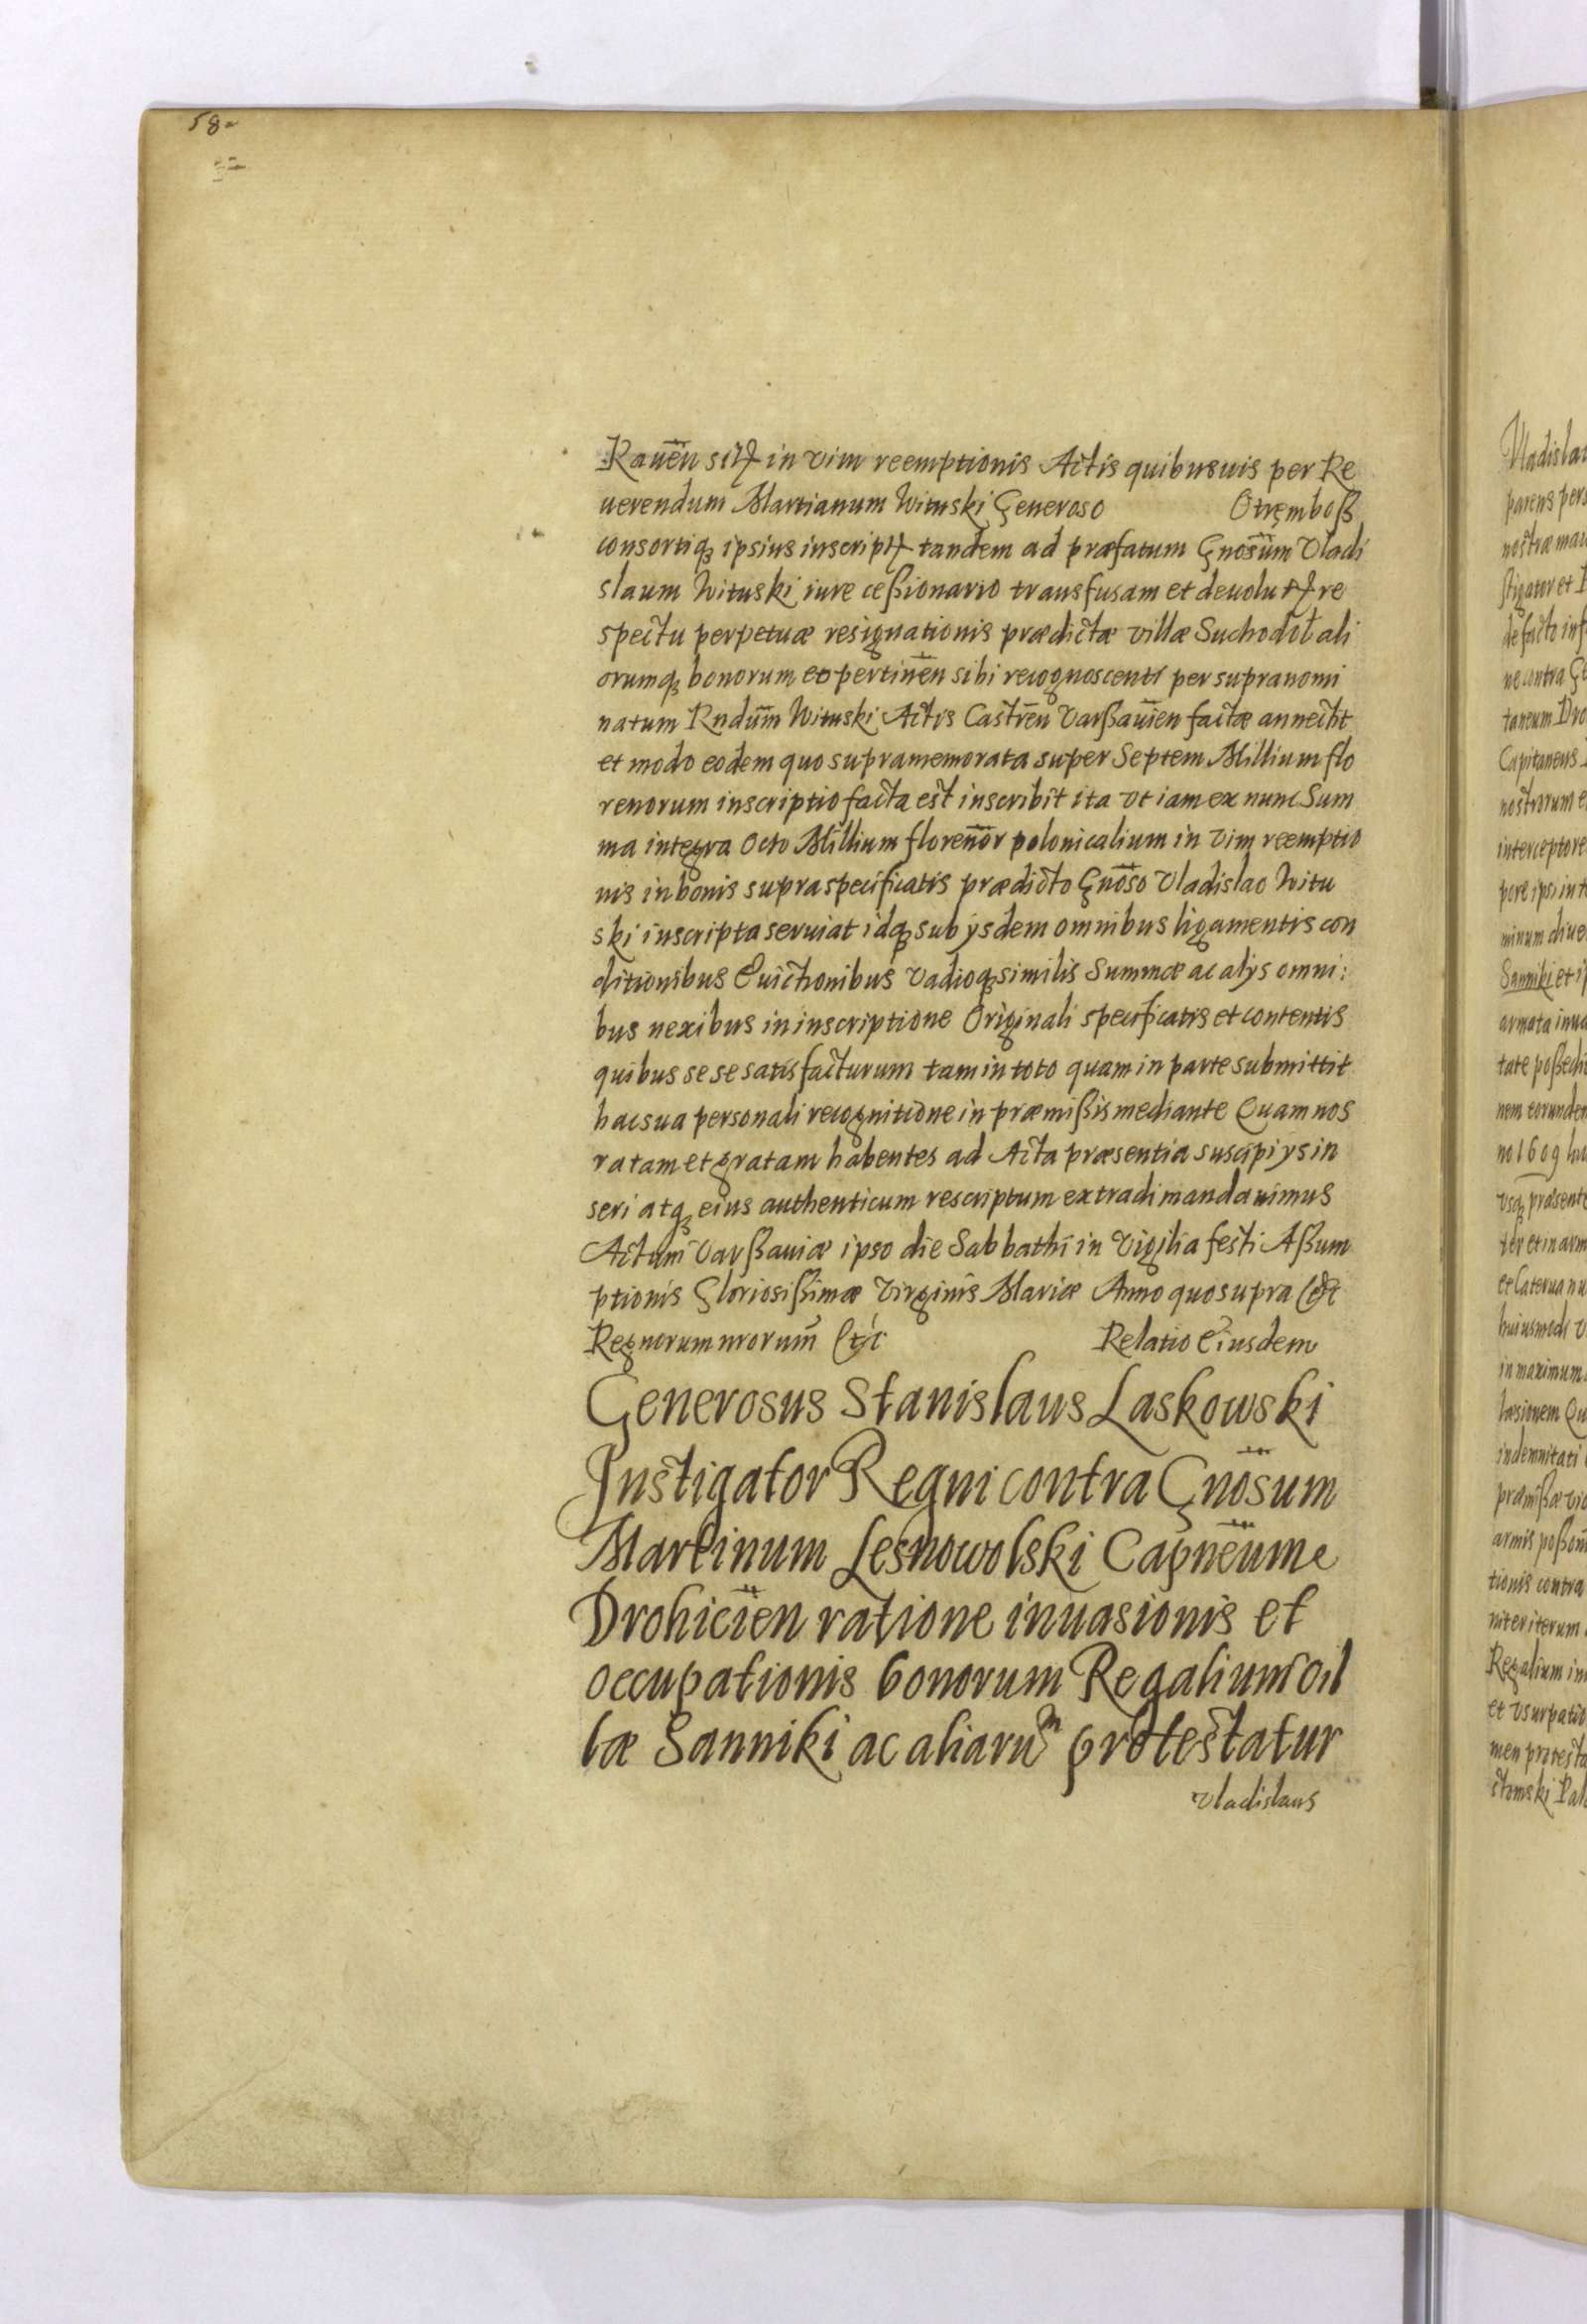 58
Raueñ sitam in vim reemptionis Actis quibusuis per Re
uerendum Martianum Wituski Generoso Otręmboß
consortiq; ipsius inscriptam tandem ad præfatum Gnosum Vladi
slaum Wituski iure ceßionario transfusam et deuolutam re
spectu perpetuæ resignationis prædictæ villæ Suchodoł ali
orumq; bonorum et pertineñ sibi recognoscenti per supranomi
natum Rndum Wituski Actis Castreñ Varßauień factæ annectit
et modo eodem quo supramemorata super Septem Millium flo
renorum inscriptio facta est inscribit ita vt iam ex nunc Sum
ma integra Octo Millium florenor polonicalium in vim reemptio
nis in bonis supraspecificatis prædicto Gnoso Vladislao Witu
ski inscripta seruiat idq; sub ijsdem omnibus ligamentis con
ditionibus Euictionibus vadioq; similis Summæ ac alys omni:
bus nexibus in inscriptione Originali specificatis et contentis
quibus sese satisfacturum tam in toto quam in parte submittit
hac sua personali recognitione in præmißis mediante Quam nos
ratam et gratam habentes ad Acta præsentia suscipi ys in
seri atq; eius authenticum rescriptum extradi mandauimus
Actum Varßauiæ ipso die Sabbathi in Vigilia festi Aßum
ptionis Gloriosißimæ Virginis Mariæ Anno quo supra &c
Regnorum nrorum &c Relatio Eiusdem
Generosus Stanislaus Laskowski
Instigator Regni contra Gnosum
Martinum Lesnowolski Capneum
Drohicień ratione inuasionis et
occupationis bonorum Regalium vil
læ Sanniki ac aliarum protestatur
Vladislaus